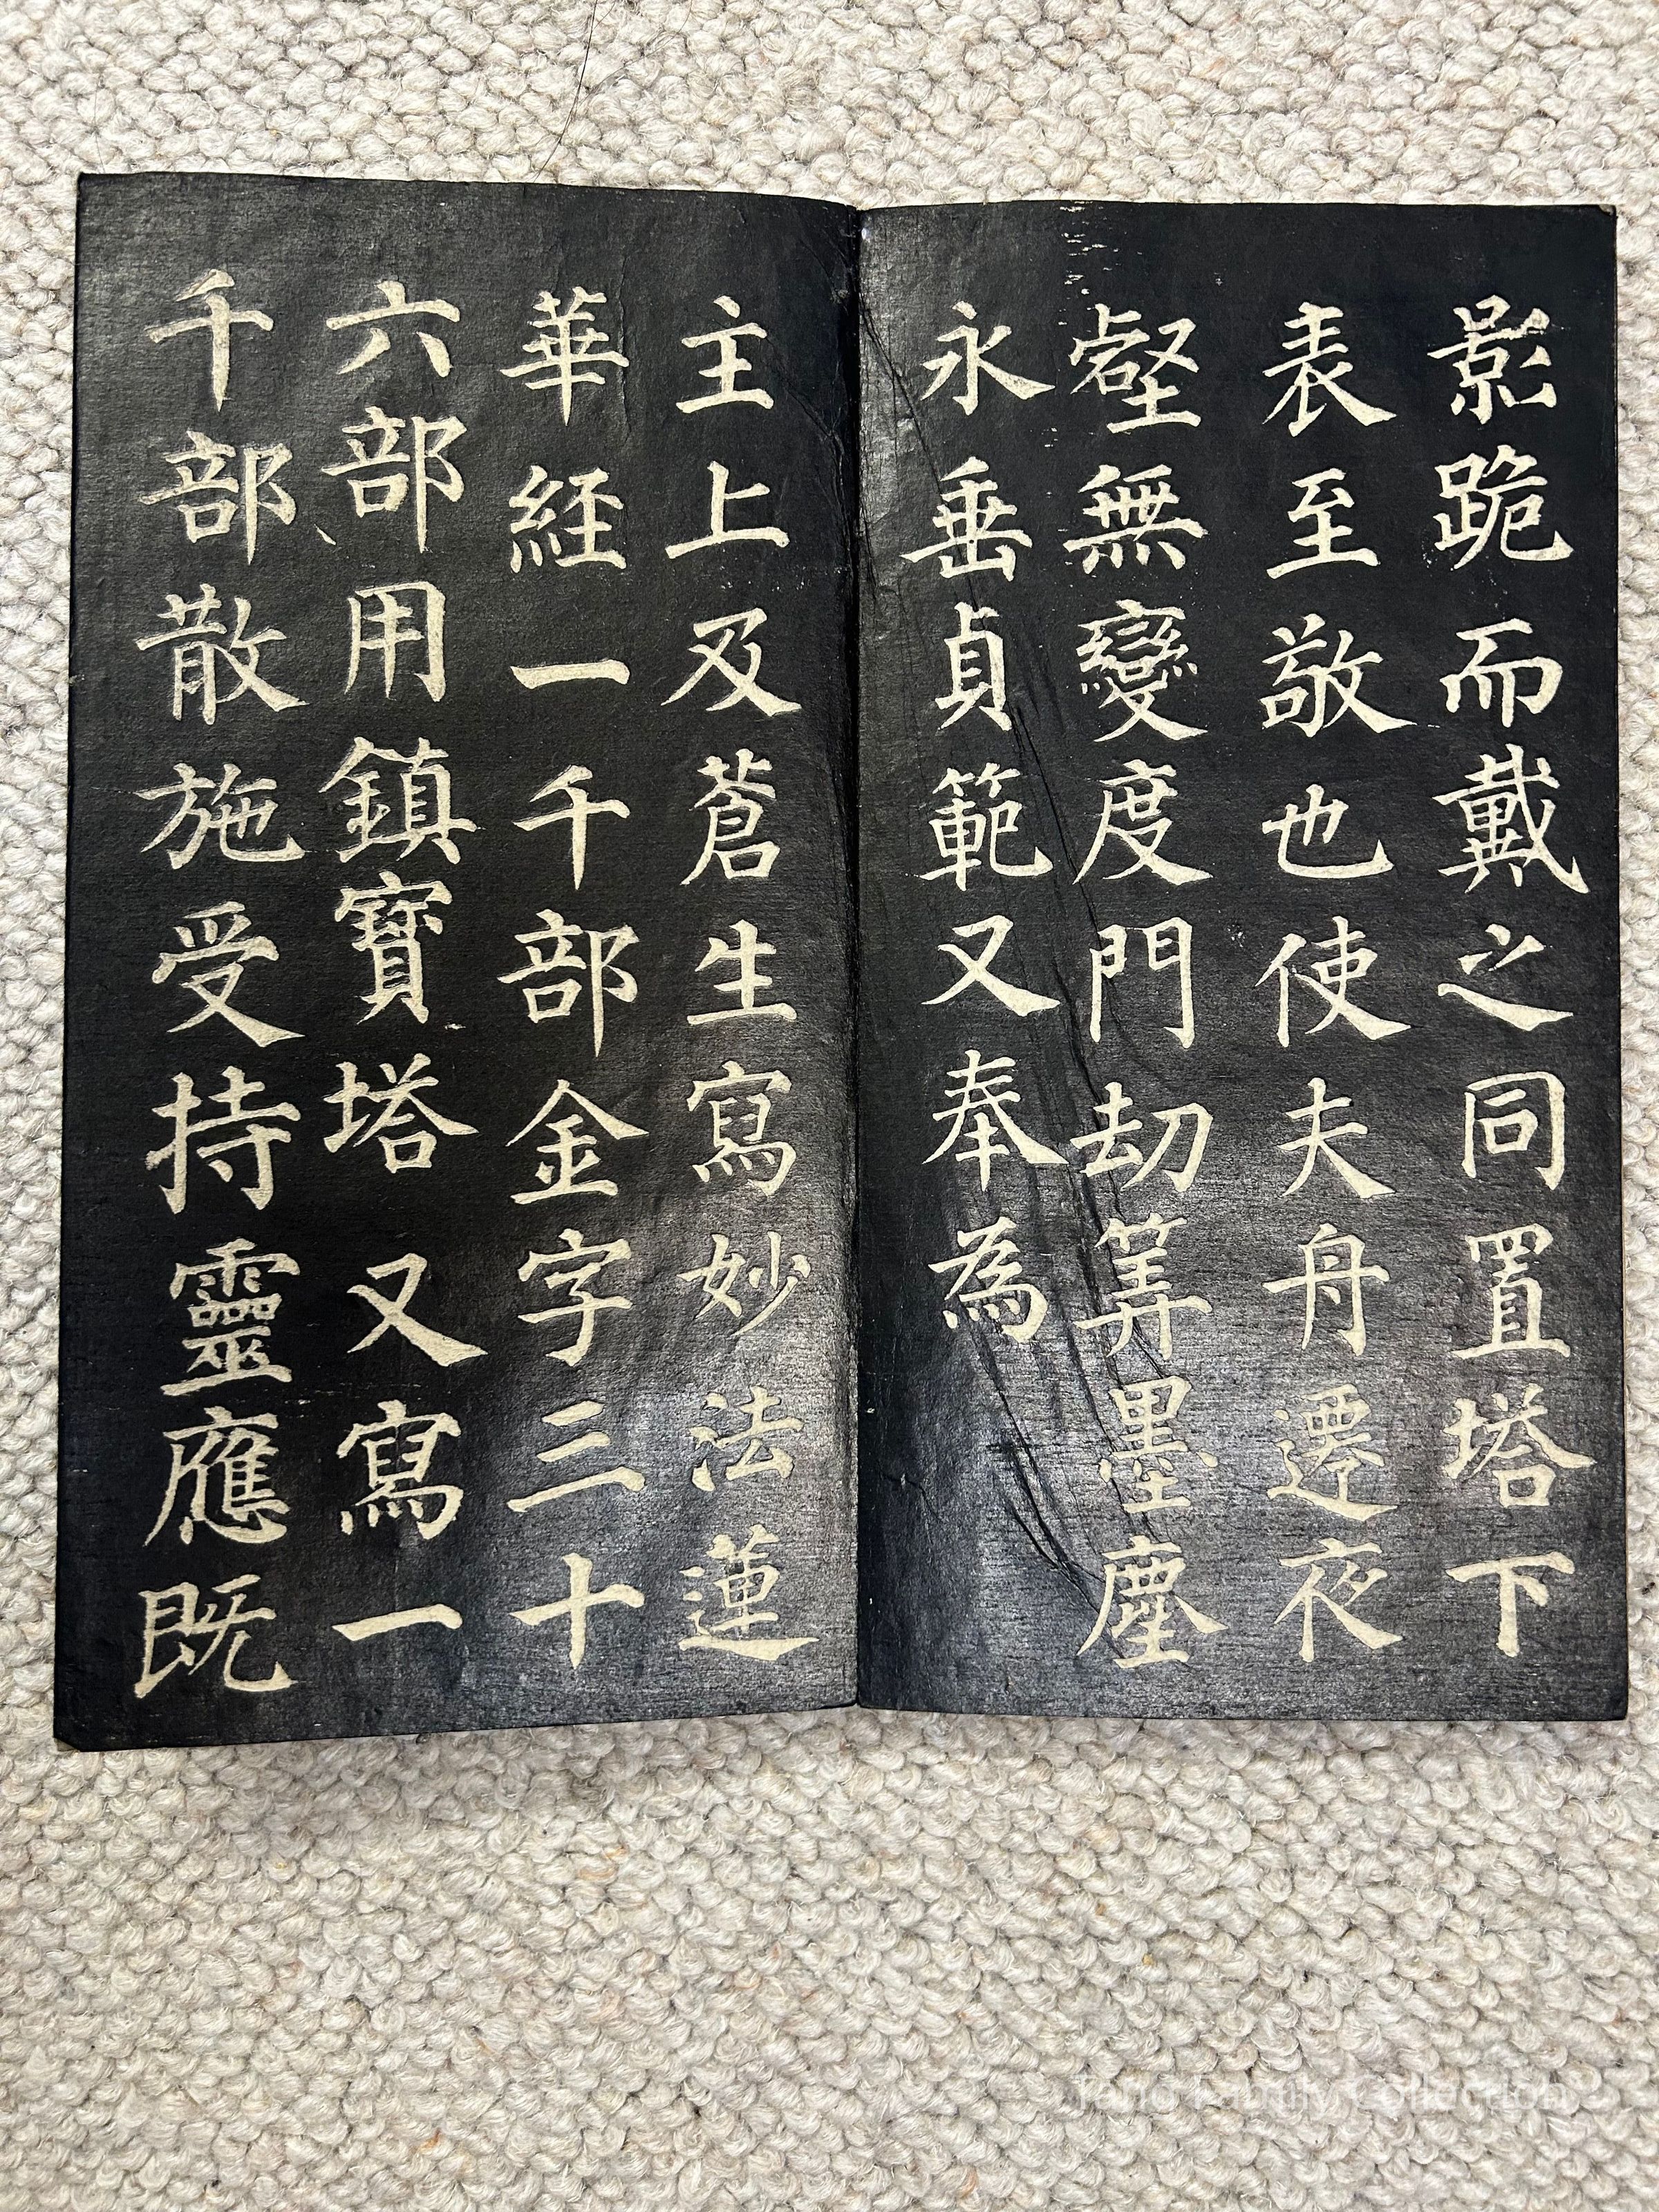 影跪而戴之同置塔下
表至敬也使夫舟遷夜
壑無變度門劫筭墨塵
永垂貞範又奉為
主上及蒼生寫妙法蓮
華經一千部金字三十
六部用鎮寶塔又寫一
千部散施受持靈應既
Tang Family Collection